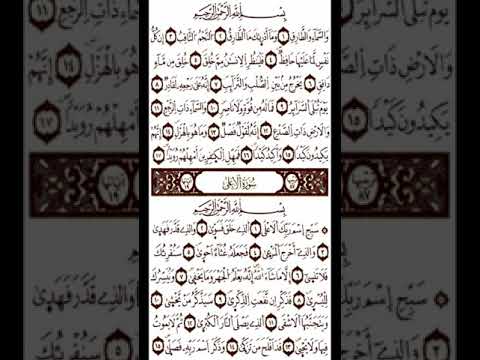 بِسْمِ اللَّهِ الرَّحْمَٰنِ الرَّحِيمِ
وَالسَّمَاءِ وَالطَّارِقِ ١ وَمَا أَدْرَاكَ مَا الطَّارِقُ ٢ النَّجْمُ الثَّاقِبُ ٣ إِن كُلُّ
نَفْسٍ لَّمَا عَلَيْهَا حَافِظٌ ٤ فَلْيَنظُرِ الْإِنسَانُ مِمَّ خُلِقَ ٥ خُلِقَ مِن مَّاءٍ
دَافِقٍ ٦ يَخْرُجُ مِن بَيْنِ الصُّلْبِ وَالتَّرَائِبِ ٧ إِنَّهُ عَلَىٰ رَجْعِهِ لَقَادِرٌ ٨
يَوْمَ تُبْلَى السَّرَائِرُ ٩ فَمَا لَهُ مِن قُوَّةٍ وَلَا نَاصِرٍ ١٠ وَالسَّمَاءِ ذَاتِ الرَّجْعِ ١١
وَالْأَرْضِ ذَاتِ الصَّدْعِ ١٢ إِنَّهُ لَقَوْلٌ فَصْلٌ ١٣ وَمَا هُوَ بِالْهَزْلِ ١٤ إِنَّهُمْ
يَكِيدُونَ كَيْدًا ١٥ وَأَكِيدُ كَيْدًا ١٦ فَمَهِّلِ الْكَافِرِينَ أَمْهِلْهُمْ رُوَيْدًا ١٧
سُورَةُ الْأَعْلَىٰ
بِسْمِ اللَّهِ الرَّحْمَٰنِ الرَّحِيمِ
سَبِّحِ اسْمَ رَبِّكَ الْأَعْلَى ١ الَّذِي خَلَقَ فَسَوَّىٰ ٢ وَالَّذِي قَدَّرَ فَهَدَىٰ
٣ وَالَّذِي أَخْرَجَ الْمَرْعَىٰ ٤ فَجَعَلَهُ غُثَاءً أَحْوَىٰ ٥ سَنُقْرِئُكَ
فَلَا تَنسَىٰ ٦ إِلَّا مَا شَاءَ اللَّهُ إِنَّهُ يَعْلَمُ الْجَهْرَ وَمَا يَخْفَىٰ ٧ وَنُيَسِّرُكَ
لِلْيُسْرَىٰ ٨ فَذَكِّرْ إِن نَّفَعَتِ الذِّكْرَىٰ ٩ سَيَذَّكَّرُ مَن يَخْشَىٰ ١٠
وَيَتَجَنَّبُهَا الْأَشْقَى ١١ الَّذِي يَصْلَى النَّارَ الْكُبْرَىٰ ١٢ ثُمَّ لَا يَمُوتُ
فِيهَا وَلَا يَحْيَىٰ ١٣ قَدْ أَفْلَحَ مَن تَزَكَّىٰ ١٤ وَذَكَرَ اسْمَ رَبِّهِ فَصَلَّىٰ ١٥